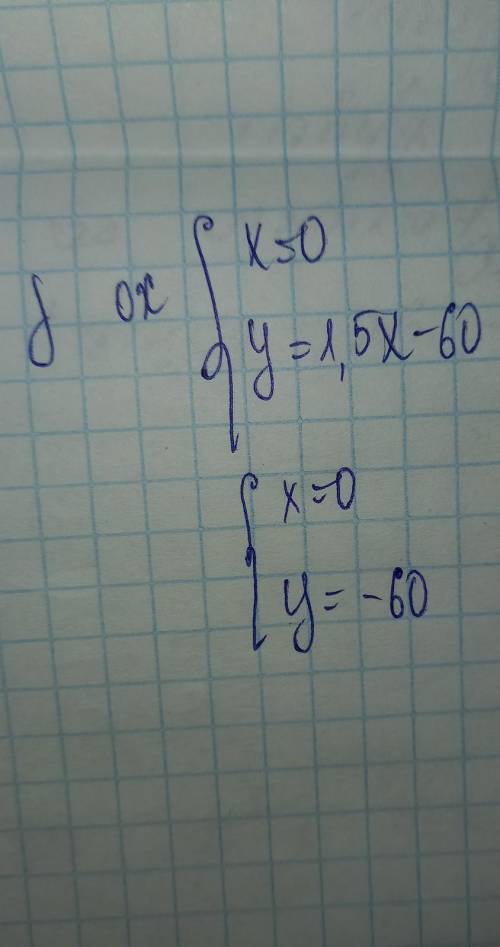 ox { x=0
y=1,5x-60
{ x=0
y=-60